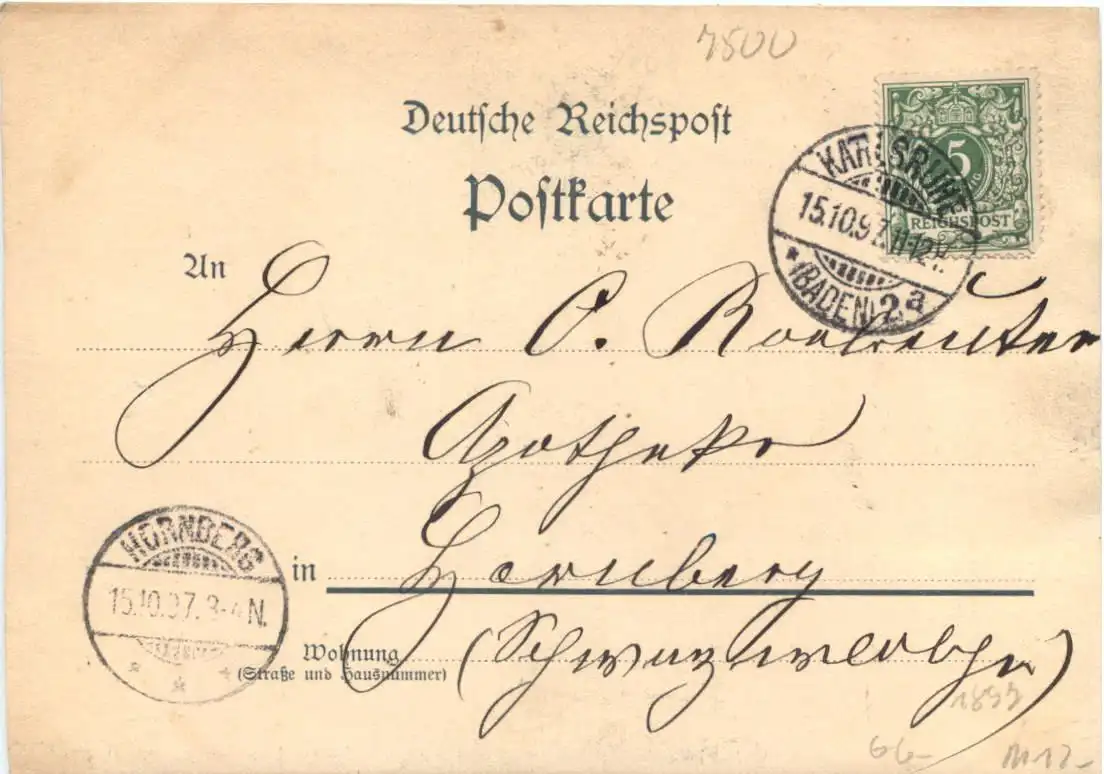 7500
Deutsche Reichspost
Postkarte
5
REICHSPOST
KARLSRUHE
15.10.97.11-12V.
* (BADEN) 2a
An
Herrn O.
Apotheke
HORNBERG
15.10.97.3-4N.
* * *
in Hornberg
Wohnung
(Straße und Hausnummer)
(Schwarzwaldbahn)
66-